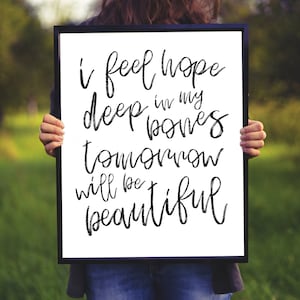 i feel hope
deep in my
bones
tomorrow
will be
beautiful